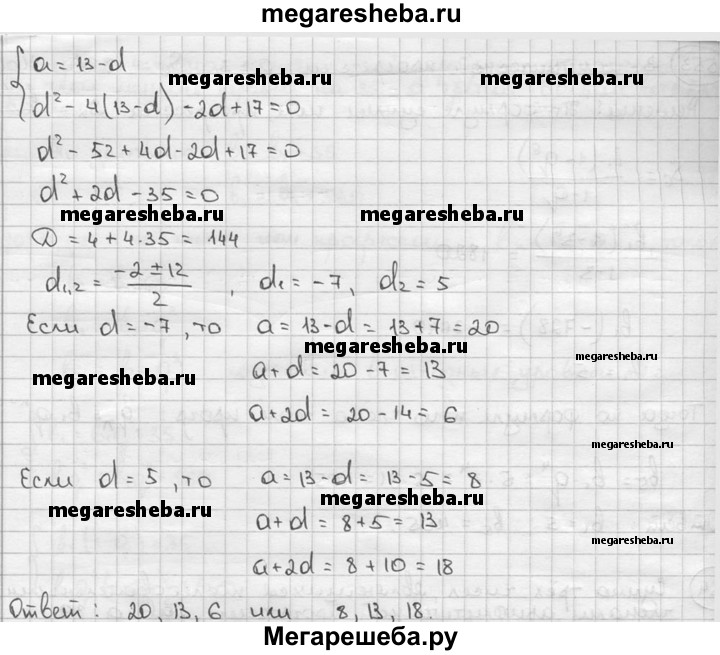 megaresheba.ru
{ a = 13 - d
megaresheba.ru megaresheba.ru
d² - 4(13 - d) - 2d + 17 = 0
d² - 52 + 4d - 2d + 17 = 0
d² + 2d - 35 = 0
megaresheba.ru megaresheba.ru
D = 4 + 4·35 = 144
d₁,₂ = (-2 ± 12)/2 , d₁ = -7, d₂ = 5
Если d = -7, то a = 13 - d = 13 + 7 = 20
megaresheba.ru megaresheba.ru
a + d = 20 - 7 = 13
megaresheba.ru
a + 2d = 20 - 14 = 6
megaresheba.ru
Если d = 5, то a = 13 - d = 13 - 5 = 8
megaresheba.ru megaresheba.ru
a + d = 8 + 5 = 13
megaresheba.ru
a + 2d = 8 + 10 = 18
Ответ: 20, 13, 6 или 8, 13, 18.
Мегарешеба.ру